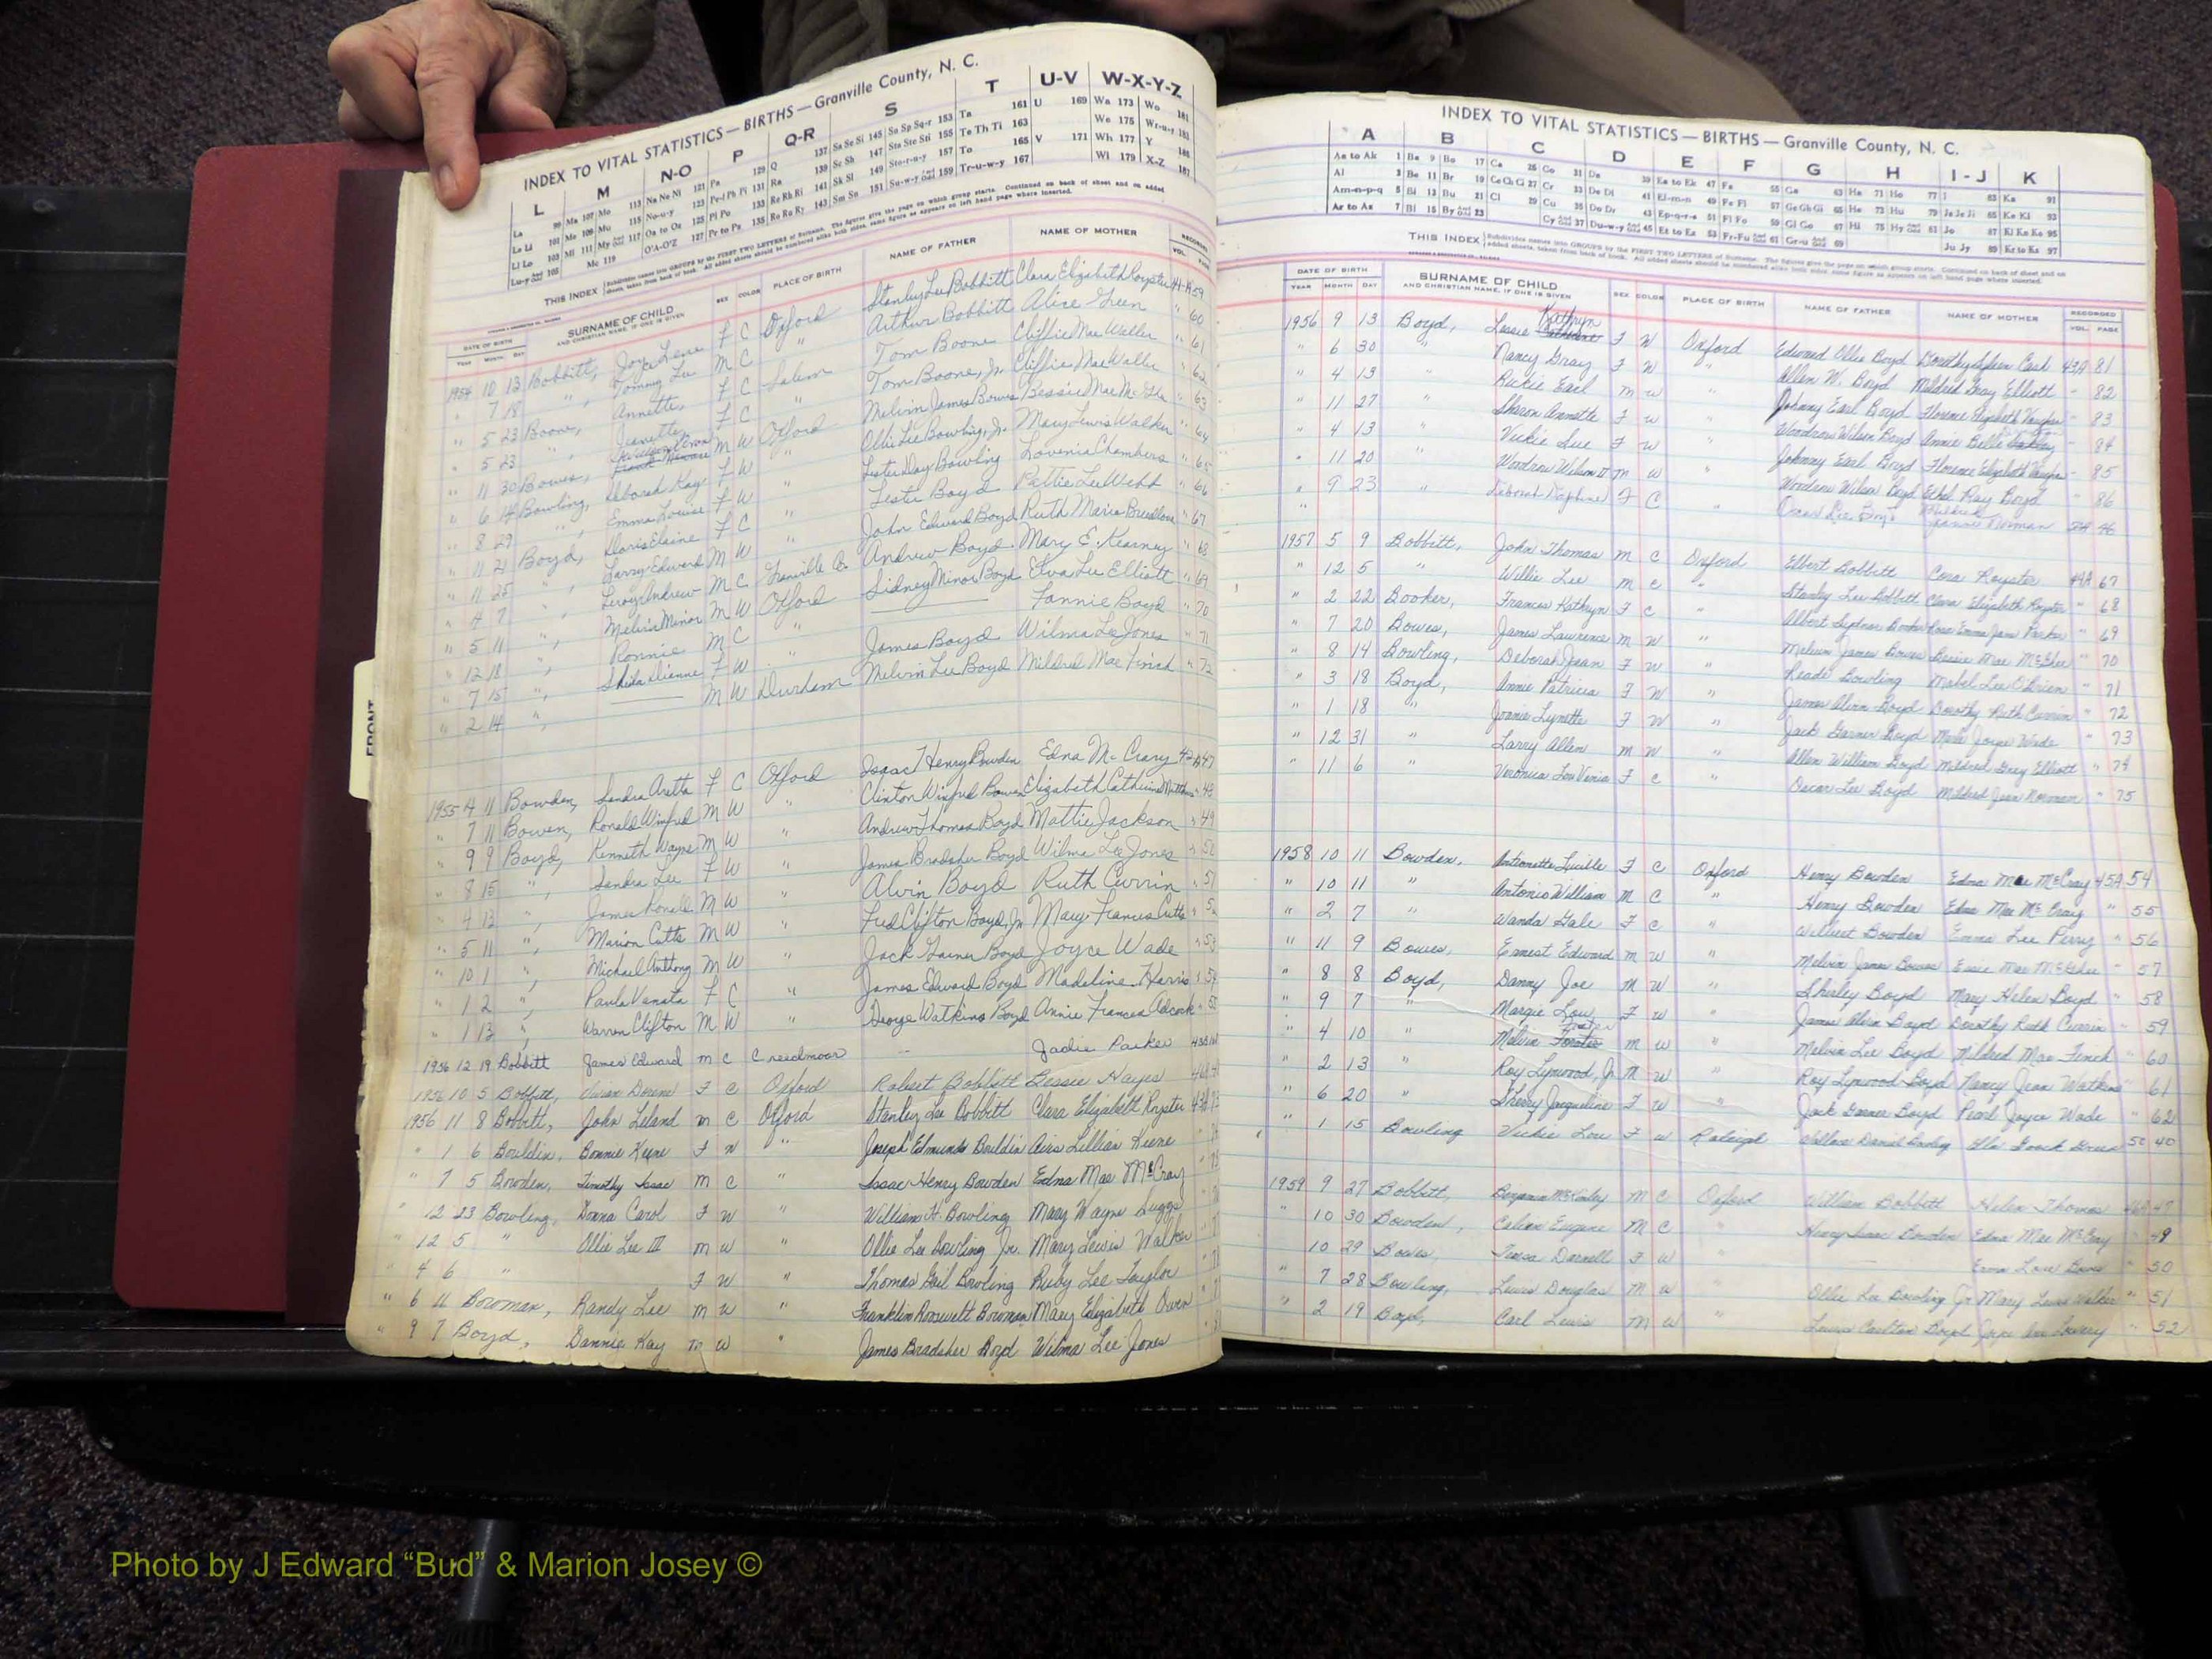 INDEX TO VITAL STATISTICS — BIRTHS — Granville County, N. C.
L M N-O P Q-R S T U-V W-X-Y-Z
THIS INDEX
DATE OF BIRTH SURNAME OF CHILD AND CHRISTIAN NAME, IF ONE IS GIVEN SEX COLOR PLACE OF BIRTH NAME OF FATHER NAME OF MOTHER RECORDED
YEAR MONTH DAY VOL. PAGE
1954 10 13 Bobbitt, Joyce F C Oxford Stanley Lee Bobbitt Clara Elizabeth Royster 59
" 7 18 " , Tommy Lee M C " Arthur Bobbitt Alice Green 60
" 5 23 Boone, Annette, F C Salem Tom Boone Cliffie Mae Waller " 61
" 5 23 " , Jeanette, F C " Tom Boone, Jr. Cliffie Mae Waller " 62
" 11 30 Bowes, M W Oxford Melvin James Bowes Bessie Mae " 63
" 6 14 Bowling, Deborah Kay F W " Ollie Lee Bowling, Jr. Mary Lewis Walker " 64
" 8 29 " , Emma Louise F W " Lester Day Bowling Lovenia Chambers " 65
" 11 21 Boyd, Doris Elaine F C " Lester Boyd Pattie Lee Webb " 66
" 11 25 " , Larry Edward M W " John Edward Boyd Ruth Marie Breedlove " 67
" 4 7 " , Leroy Andrew M C Granville Co. Andrew Boyd Mary E. Kearney " 68
" 5 11 " , Melvin Minor M W Oxford Sidney Minor Boyd Elva Lee Elliott " 69
" 12 18 " , Ronnie M C " Fannie Boyd " 70
" 7 15 " , Shila Dianne F W " James Boyd Wilma Lee Jones " 71
" 2 14 " , M W Durham Melvin Lee Boyd Mildred Mae Finch " 72
1955 4 11 Bowden, Sandra Aretta F C Oxford Isaac Henry Bowden Edna McCrary 47
" 7 11 Bowen, Ronald Winfred M W " Clinton Winfred Bowen Elizabeth Catherine " 48
" 9 9 Boyd, Kenneth Wayne M W " Andrew Thomas Boyd Mattie Jackson " 49
" 8 15 " , Sandra Lee F W " James Bradsher Boyd Wilma Lee Jones " 50
" 4 12 " , James Ronald M W " Alvin Boyd Ruth Currin " 51
" 5 11 " , Marion Cutts M W " Fred Clifton Boyd, Jr. Mary Frances Cutts "
" 10 1 " , Michael Anthony M W " Jack Garner Boyd Joyce Wade " 53
" 1 2 " , Paula F C " James Edward Boyd Madeline Harris " 54
" 1 13 " , Warren Clifton M W " George Watkins Boyd Annie Frances Adcock " 55
1956 12 19 Bobbitt James Edward M C Creedmoor Jadie Parker
1956 10 5 Bobbitt, Vivian F C Oxford Robert Bobbitt Bessie Hayes
1956 11 8 Bobbitt, John Leland M C Oxford Stanley Lee Bobbitt Clara Elizabeth Royster
" 1 6 Bouldin, Bonnie Keene F W " Joseph Edmunds Bouldin Lillian Keene
" 7 5 Bowden, Timothy Isaac M C " Isaac Henry Bowden Edna Mae McCray
" 12 23 Bowling, Donna Carol F W " William H. Bowling Mary Wayne Suggs
" 12 5 " Ollie Lee III M W " Ollie Lee Bowling Jr. Mary Lewis Walker
" 4 6 " F W " Thomas Gail Bowling Ruby Lee Taylor
" 6 11 Bowman, Randy Lee M W " Franklin Roosevelt Bowman Mary Elizabeth Owen
" 9 7 Boyd, Dannie Kay M W " James Bradsher Boyd Wilma Lee Jones
FRONT
INDEX TO VITAL STATISTICS — BIRTHS — Granville County, N. C.
A B C D E F G H I-J K
THIS INDEX
DATE OF BIRTH SURNAME OF CHILD AND CHRISTIAN NAME, IF ONE IS GIVEN SEX COLOR PLACE OF BIRTH NAME OF FATHER NAME OF MOTHER RECORDED
YEAR MONTH DAY VOL. PAGE
1956 9 13 Boyd, Lessie Kathryn F W Oxford Edward Ollie Boyd Dorothy Cash 43A 81
" 6 30 " Nancy Gray F W " Allen W. Boyd Mildred Gray Elliott " 82
" 4 13 " Rickie Earl M W " Johnny Earl Boyd Florence Elizabeth " 83
" 11 27 " Sharon Annette F W " Woodrow Wilson Boyd Annie Belle " 84
" 4 13 " Vickie Sue F W " Johnny Earl Boyd Florence Elizabeth " 85
" 11 20 " Woodrow Wilson II M W " Woodrow Wilson Boyd Ethel Ray Boyd " 86
" 9 23 " Deborah Daphine F C " Oscar Lee Boyd Mildred Jeanne Norman 46
1957 5 9 Bobbitt, John Thomas M C Oxford Elbert Bobbitt Cora Royster 44A 67
" 12 5 " Willie Lee M C " Stanley Lee Bobbitt Clara Elizabeth Royster " 68
" 2 22 Booker, Frances Kathryn F C " Albert Booker Rosa Emma Jane Parker " 69
" 7 20 Bowes, James Lawrence M W " Melvin James Bowes Bessie Mae McGhee " 70
" 8 14 Bowling, Deborah Jean F W " Reade Bowling Mabel Lee O'Brien " 71
" 3 18 Boyd, Annie Patricia F W " James Alvin Boyd Dorothy Ruth Currin " 72
" 1 18 " Jonnie Lynette F W " Jack Garner Boyd Joyce Wade " 73
" 12 31 " Larry Allen M W " Allen William Boyd Mildred Gray Elliott " 74
" 11 6 " Veronica LouVenia F C " Oscar Lee Boyd Mildred Jean Norman " 75
1958 10 11 Bowden, Antionette Lucille F C Oxford Henry Bowden Edna Mae McCray 45A 54
" 10 11 " Antonio William M C " Henry Bowden Edna Mae McCraig " 55
" 2 7 " Wanda Gale F C " Wilbert Bowden Emma Lee Perry " 56
" 11 9 Bowes, Earnest Edward M W " Melvin James Bowes Essie Mae McGhee " 57
" 8 8 Boyd, Danny Joe M W " Shirley Boyd Mary Helen Boyd " 58
" 9 7 " Margie Lou F W " James Alvin Boyd Dorothy Ruth Currin " 59
" 4 10 " Melvin Foster M W " Melvin Lee Boyd Mildred Mae Finch " 60
" 2 13 " Roy Lynwood, Jr. M W " Roy Lynwood Boyd Nancy Jean Watkins " 61
" 6 20 " Sherry Jacqueline F W " Jack Garner Boyd Pearl Joyce Wade " 62
" 1 15 Bowling Vickie Lou F W Raleigh Wallace Daniel Bowling Ella Green 50 40
1959 9 27 Bobbitt, Benjamin McKinley M C Oxford William Bobbitt Helen Thomas 46A 47
" 10 30 Bowden, Calvin Eugene M C " Henry Isaac Bowden Edna Mae McCray " 49
" 10 29 Bowes, Teresa Darnell F W " Erma Lou Bowes " 50
" 7 28 Bowling, Lewis Douglas M W " Ollie Lee Bowling Jr. Mary Lewis Walker " 51
" 2 19 Boyd, Carl Lewis M W " Lewis Carlton Boyd Lowery " 52
Photo by J Edward “Bud” & Marion Josey ©